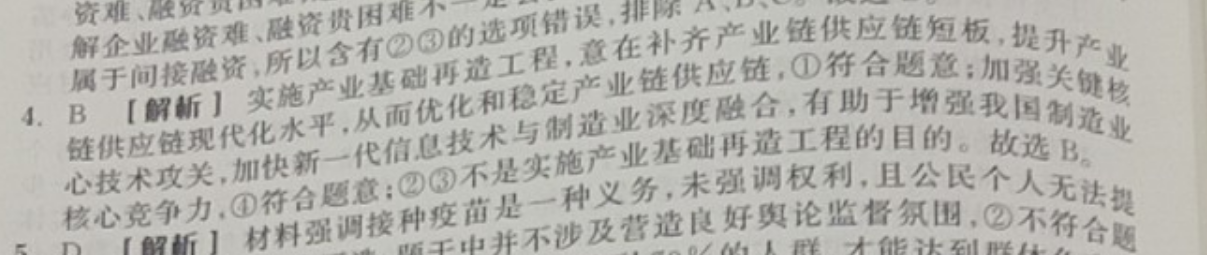 资难、融资贵困
解企业融资难、融资贵困难不一
属于间接融资,所以含有②③的选项错误,排除A、B、C。
4. B 【解析】 实施产业基础再造工程,意在补齐产业链供应链短板,提升产业
链供应链现代化水平,从而优化和稳定产业链供应链,①符合题意;加强关键核
心技术攻关,加快新一代信息技术与制造业深度融合,有助于增强我国制造业
核心竞争力,④符合题意;②③不是实施产业基础再造工程的目的。故选B。
5. D 【解析】 材料强调接种疫苗是一种义务,未强调权利,且公民个人无法提
题干中并不涉及营造良好舆论监督氛围,②不符合题
70%的人群,才能达到群体